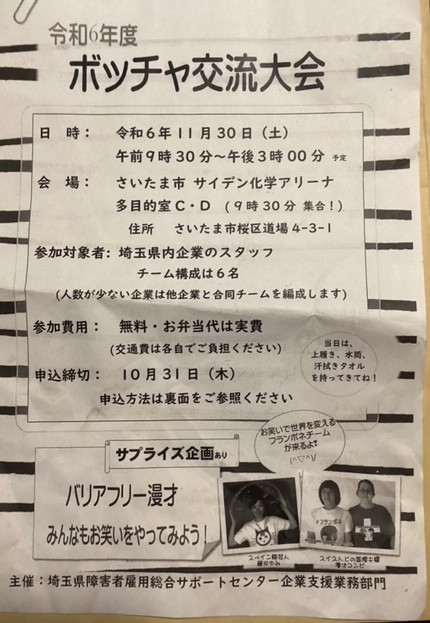 令和6年度
ボッチャ交流大会
日 時： 令和6年11月30日（土）
午前9時30分～午後3時00分 予定
会 場： さいたま市 サイデン化学アリーナ
多目的室C・D （9時30分 集合！）
住所 さいたま市桜区道場4-3-1
参加対象者：埼玉県内企業のスタッフ
チーム構成は6名
（人数が少ない企業は他企業と合同チームを編成します）
参加費用： 無料・お弁当代は実費
（交通費は各自でご負担ください）
申込締切： 10月31日（木）
申込方法は裏面をご参照ください
当日は、
上履き、水筒、
汗拭きタオル
を持ってきてね！
サプライズ企画あり
バリアフリー漫才
みんなもお笑いをやってみよう！
お笑いで世界を変える
フランポネチーム
が来るよ♥
(^▽^)/
スペイン語芸人
主催：埼玉県障害者雇用総合サポートセンター企業支援業務部門